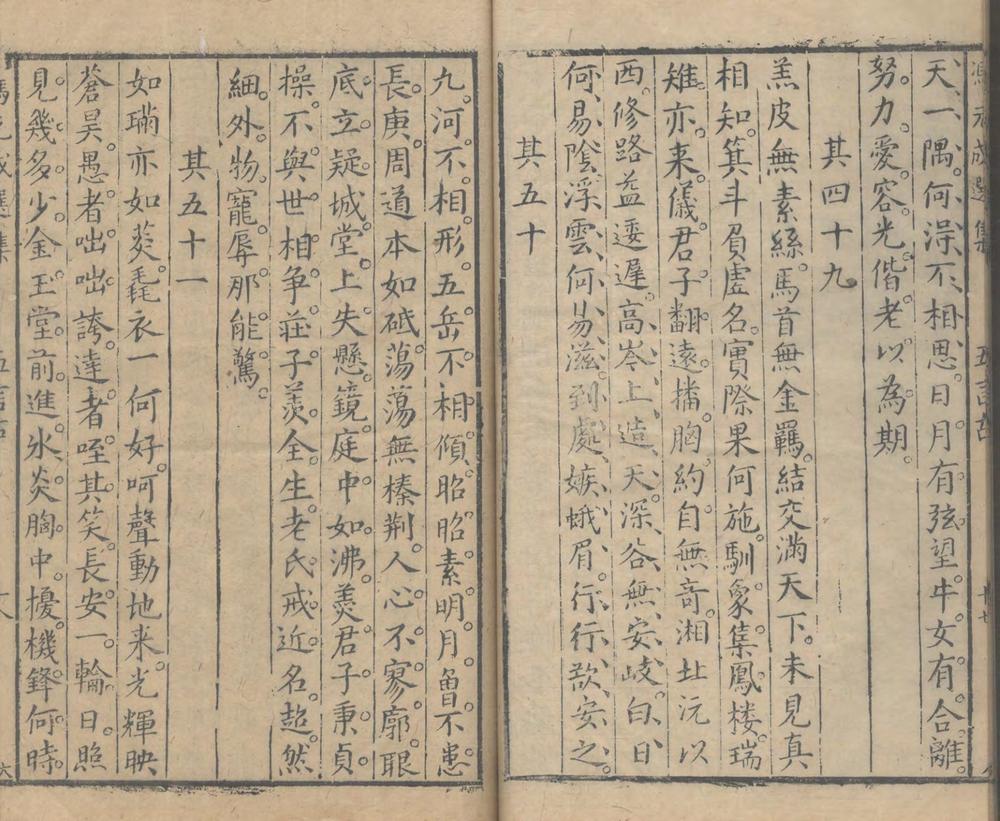 馮元成選集
五言古
十七
天一隅何淂不相思日月有弦望牛女有合離
努力愛容光偕老以為期
其四十九
羔皮無素絲馬首無金羈結交滿天下未見真
相知箕斗負虛名實際果何施馴象集鳳樓瑞
雉亦來儀君子翻遠播胸約自無奇湘北沅以
西修路益逶遲高岑上造天深谷無安岐白日
何易陰浮雲何易滋到處嫉蛾眉行行歎安之
其五十
九河不相形五岳不相傾昭昭素明月曾不患
長庚周道本如砥蕩蕩無榛荆人心不寥廓眼
底立疑城堂上失懸鏡庭中如沸羹君子秉貞
操不與世相爭莊子羡全生老氏戒近名超然
細外物寵辱那能驚
其五十一
如璊亦如菼毳衣一何好呵聲動地来光輝映
蒼昊愚者咄咄誇達者咥其笑長安一輪日照
見幾多少金玉堂前進氷炎胸中擾機鋒何時
馮元成選集
五言古